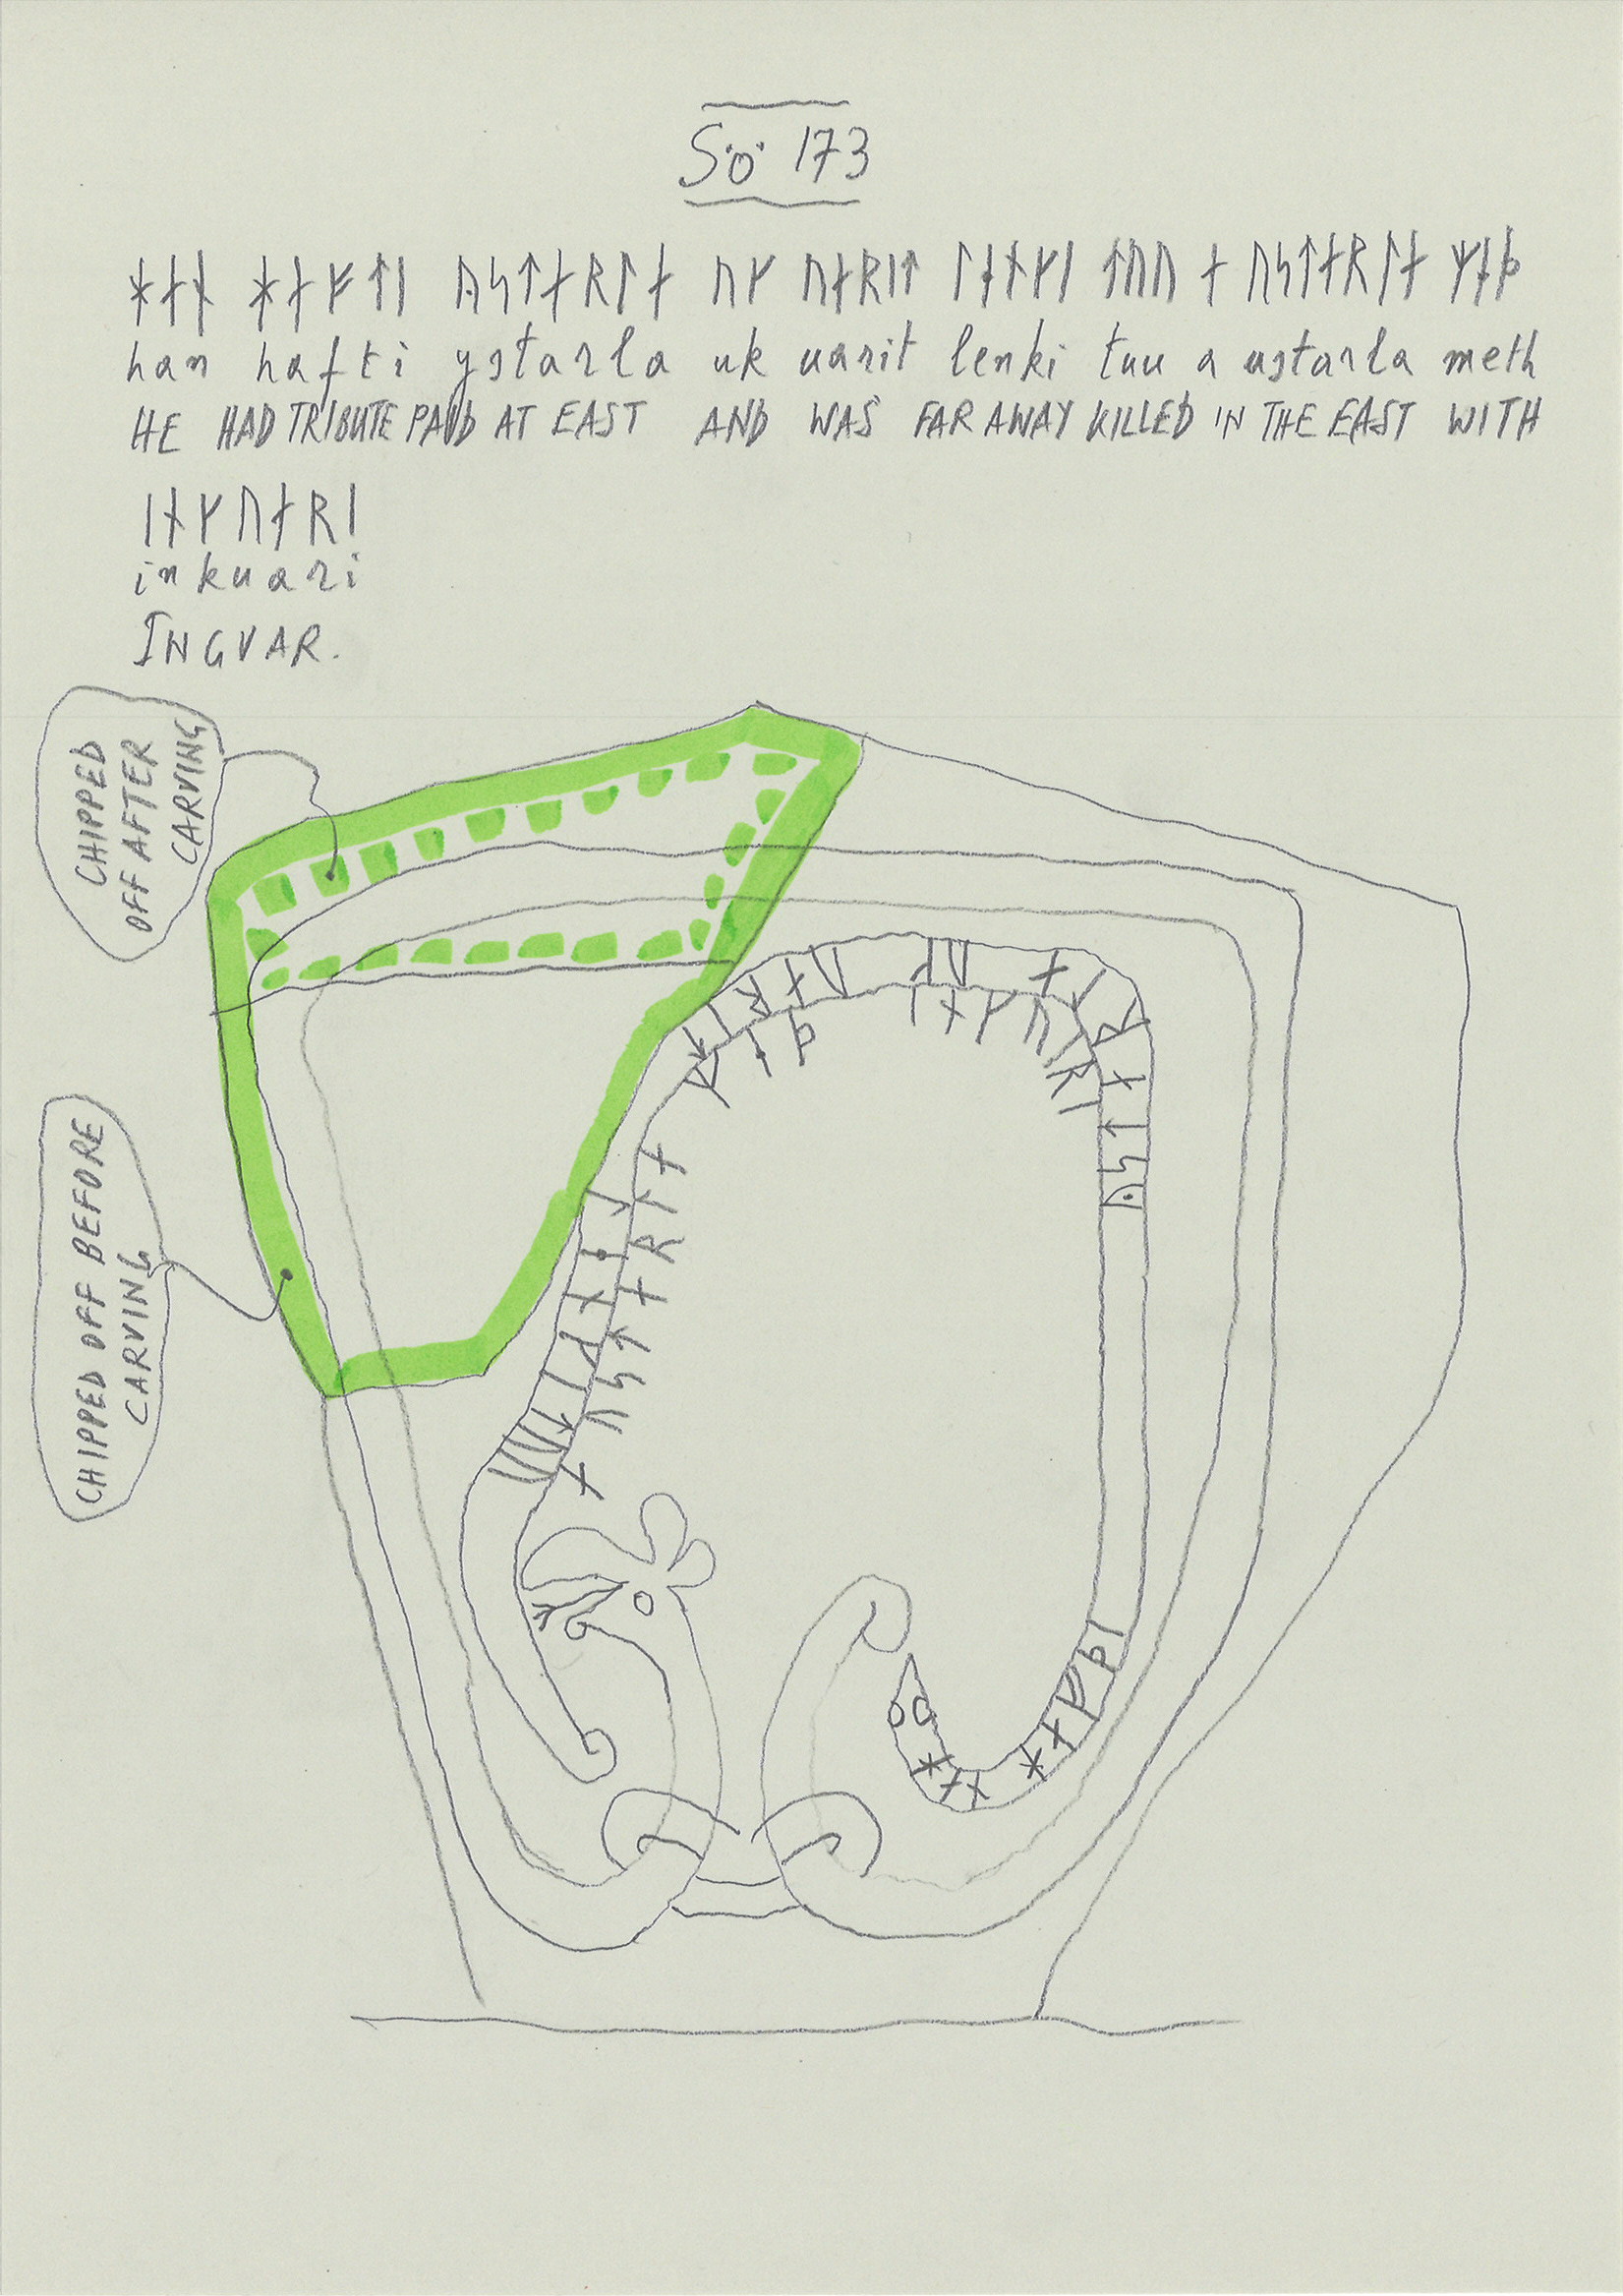 Sö 173
ᚼᛅᚾ ᚼᛅᚠᛏᛁ ᚤᛋᛏᛅᚱᛚᛅ ᚢᚴ ᚢᛅᚱᛁᛏ ᛚᛂᚾᚴᛁ ᛏᚢᚢ ᛅ ᚢᛋᛏᛅᚱᛚᛅ ᛘᛂᚦ
han hafti ystarla uk uarit lenki tuu a ustarla meth
HE HAD TRIBUTE PAID AT EAST AND WAS FAR AWAY KILLED IN THE EAST WITH
ᛁᚾᚴᚢᛅᚱᛁ
inkuari
INGVAR.
CHIPPED
OFF AFTER
CARVING
CHIPPED OFF BEFORE
CARVING